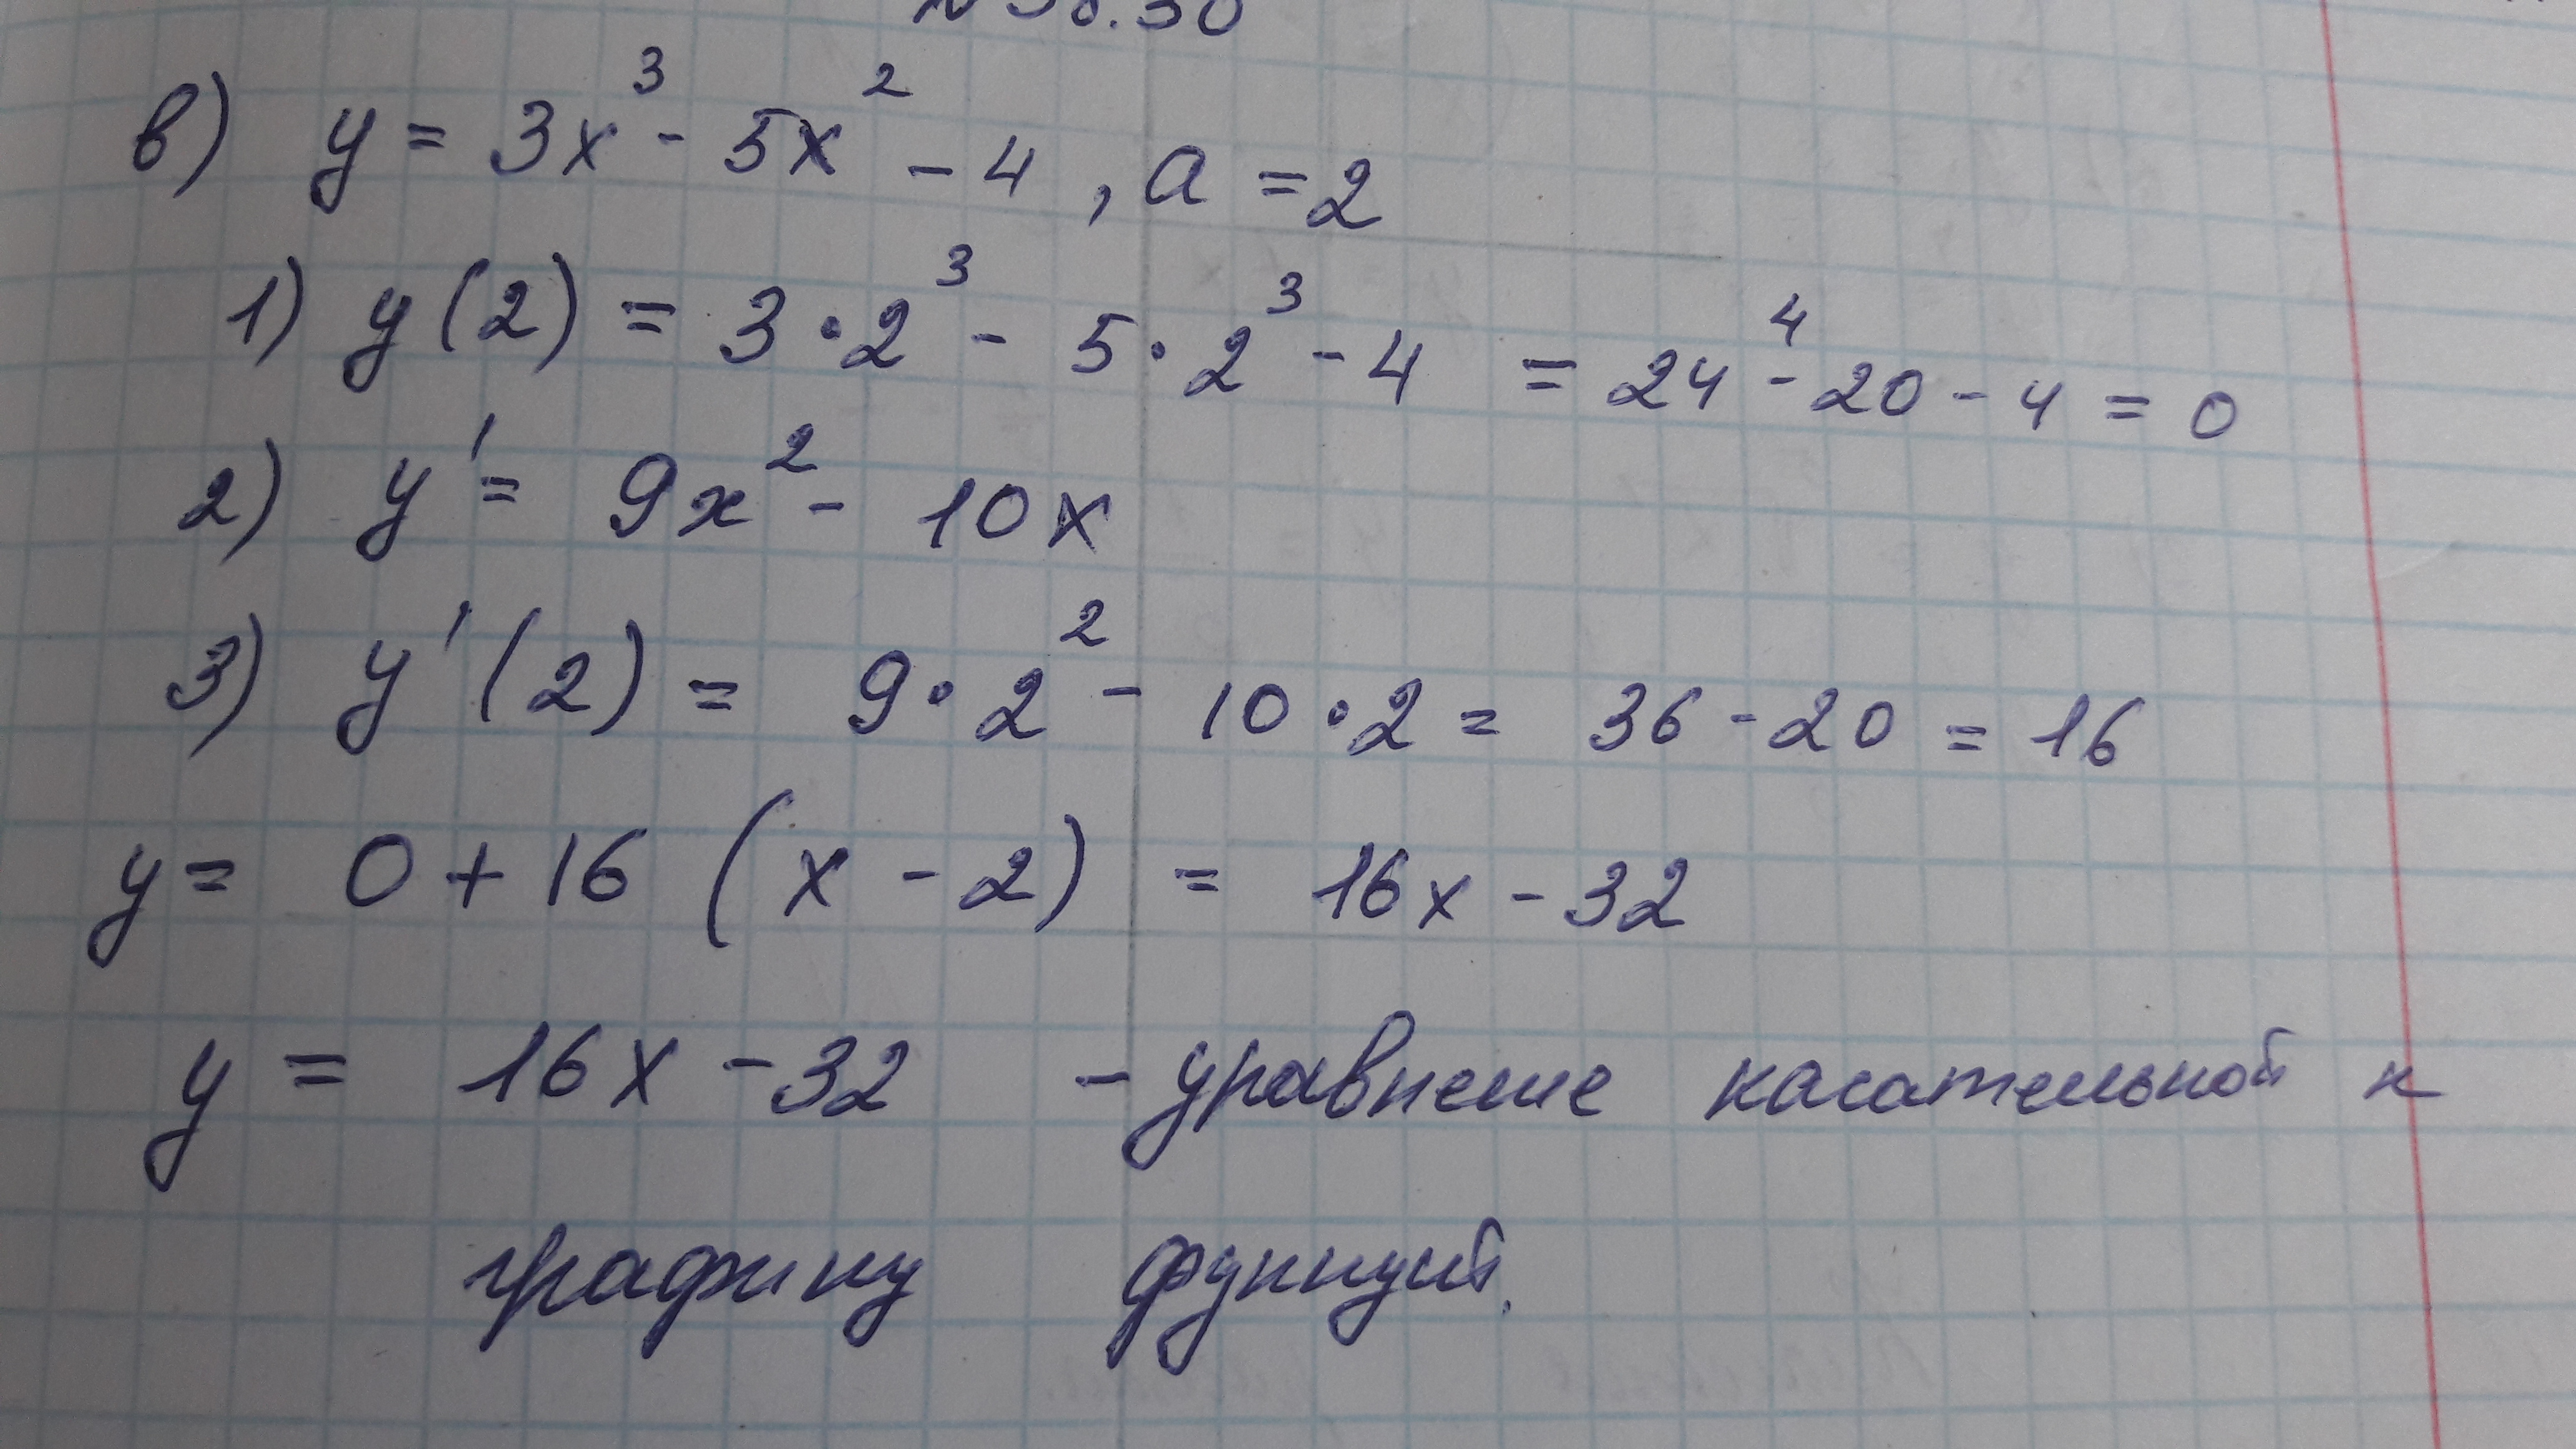 в) y = 3x³ - 5x² - 4 , a = 2
1) y(2) = 3·2³ - 5·2³ - 4 = 24⁴ - 20 - 4 = 0
2) y' = 9x² - 10x
3) y'(2) = 9·2² - 10·2 = 36 - 20 = 16
y = 0 + 16 (x - 2) = 16x - 32
y = 16x - 32 - уравнение касательной к
графику функций.